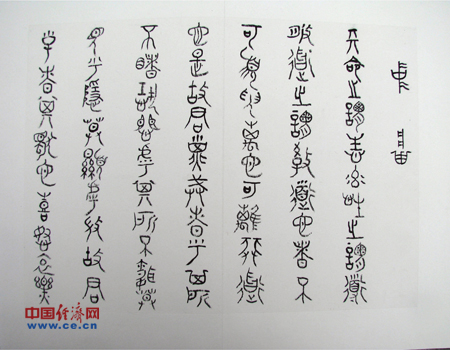 中庸
天命之謂性率性之謂道
脩道之謂教道也者不
可須臾離也可離非道
也是故君子戒慎乎其所
不睹恐懼乎其所不聞莫
見乎隱莫顯乎微故君
子慎其獨也喜怒哀樂
中国经济网
www.ce.cn